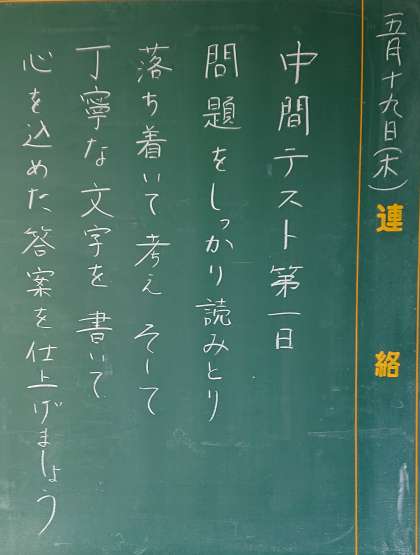 五月十九日(木)
連絡
中間テスト第一日
問題をしっかり読みとり
落ち着いて考え そして
丁寧な文字を書いて
心を込めた答案を仕上げましょう